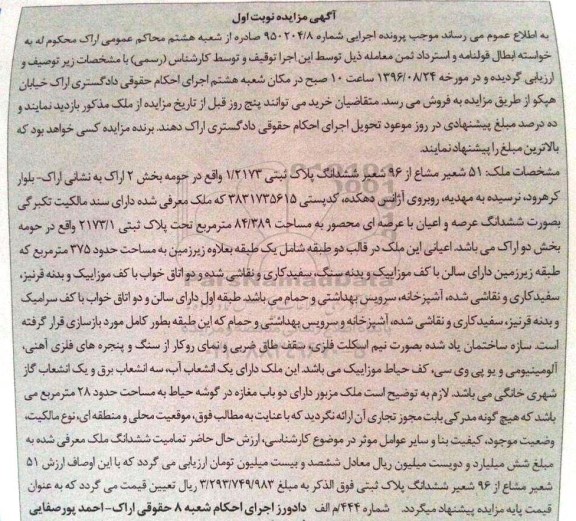 آگهی مزایده نوبت اول
به اطلاع عموم می رساند موجب پرونده اجرایی شماره ۹۵۰۲۰۴/۸ صادره از شعبه هشتم محاکم عمومی اراک محکوم له به
خواسته ابطال قولنامه و استرداد ثمن معامله ذیل توسط این اجرا توقیف و توسط کارشناس (رسمی) با مشخصات زیر توصیف و
ارزیابی گردیده و در مورخه ۱۳۹۶/۰۸/۲۴ ساعت ۱۰ صبح در مکان شعبه هشتم اجرای احکام حقوقی دادگستری اراک خیابان
هپکو از طریق مزایده به فروش می رسد. متقاضیان خرید می توانند پنج روز قبل از تاریخ مزایده از ملک مذکور بازدید نمایند و
ده درصد مبلغ پیشنهادی در روز موعود تحویل اجرای احکام حقوقی دادگستری اراک دهند. برنده مزایده کسی خواهد بود که
بالاترین مبلغ را پیشنهاد نمایند.
مشخصات ملک: ۵۱ شعیر مشاع از ۹۶ شعیر ششدانگ پلاک ثبتی ۱/۲۱۷۳ واقع در حومه بخش ۲ اراک به نشانی اراک- بلوار
کرهرود، نرسیده به مهدیه، روبروی آژانس دهکده، کدپستی ۳۸۳۱۷۳۵۶۱۵ که ملک معرفی شده دارای سند مالکیت تکبرگی
بصورت ششدانگ عرصه و اعیان با عرصه ای محصور به مساحت ۸۴/۳۸۹ مترمربع تحت پلاک ثبتی ۲۱۷۳/۱ واقع در حومه
بخش دو اراک می باشد. اعیانی این ملک در قالب دو طبقه شامل یک طبقه بعلاوه زیرزمین به مساحت حدود ۳۷۵ مترمربع که
طبقه زیرزمین دارای سالن با کف موزاییک و بدنه سنگ، سفیدکاری و نقاشی شده و دو اتاق خواب با کف موزاییک و بدنه قرنیز،
سفیدکاری و نقاشی شده، آشپزخانه، سرویس بهداشتی و حمام می باشد. طبقه اول دارای سالن و دو اتاق خواب با کف سرامیک
و بدنه قرنیز، سفیدکاری و نقاشی شده، آشپزخانه و سرویس بهداشتی و حمام که این طبقه بطور کامل مورد بازسازی قرار گرفته
است. سازه ساختمان یاد شده بصورت نیم اسکلت فلزی، سقف طاق ضربی و نمای روکار از سنگ و پنجره های فلزی آهنی،
آلومینیومی و یو پی وی سی، کف حیاط موزاییک می باشد. این ملک دارای یک انشعاب آب، سه انشعاب برق و یک انشعاب گاز
شهری خانگی می باشد. لازم به توضیح است ملک مزبور دارای دو باب مغازه در گوشه حیاط به مساحت حدود ۲۸ مترمربع می
باشد که هیچ گونه مدرکی بابت مجوز تجاری آن ارائه نگردید که با عنایت به مطالب فوق، موقعیت محلی و منطقه ای، نوع مالکیت،
وضعیت موجود، کیفیت بنا و سایر عوامل موثر در موضوع کارشناسی، ارزش حال حاضر تمامیت ششدانگ ملک معرفی شده به
مبلغ شش میلیارد و دویست میلیون ریال معادل ششصد و بیست میلیون تومان ارزیابی می گردد که با این اوصاف ارزش ۵۱
شعیر مشاع از ۹۶ شعیر ششدانگ پلاک ثبتی فوق الذکر به مبلغ ۳/۲۹۳/۷۴۹/۹۸۳ ریال تعیین قیمت می گردد که به عنوان
قیمت پایه مزایده پیشنهاد میگردد. شماره ۴۴۴/م الف دادورز اجرای احکام شعبه ۸ حقوقی اراک- احمد پورصفایی